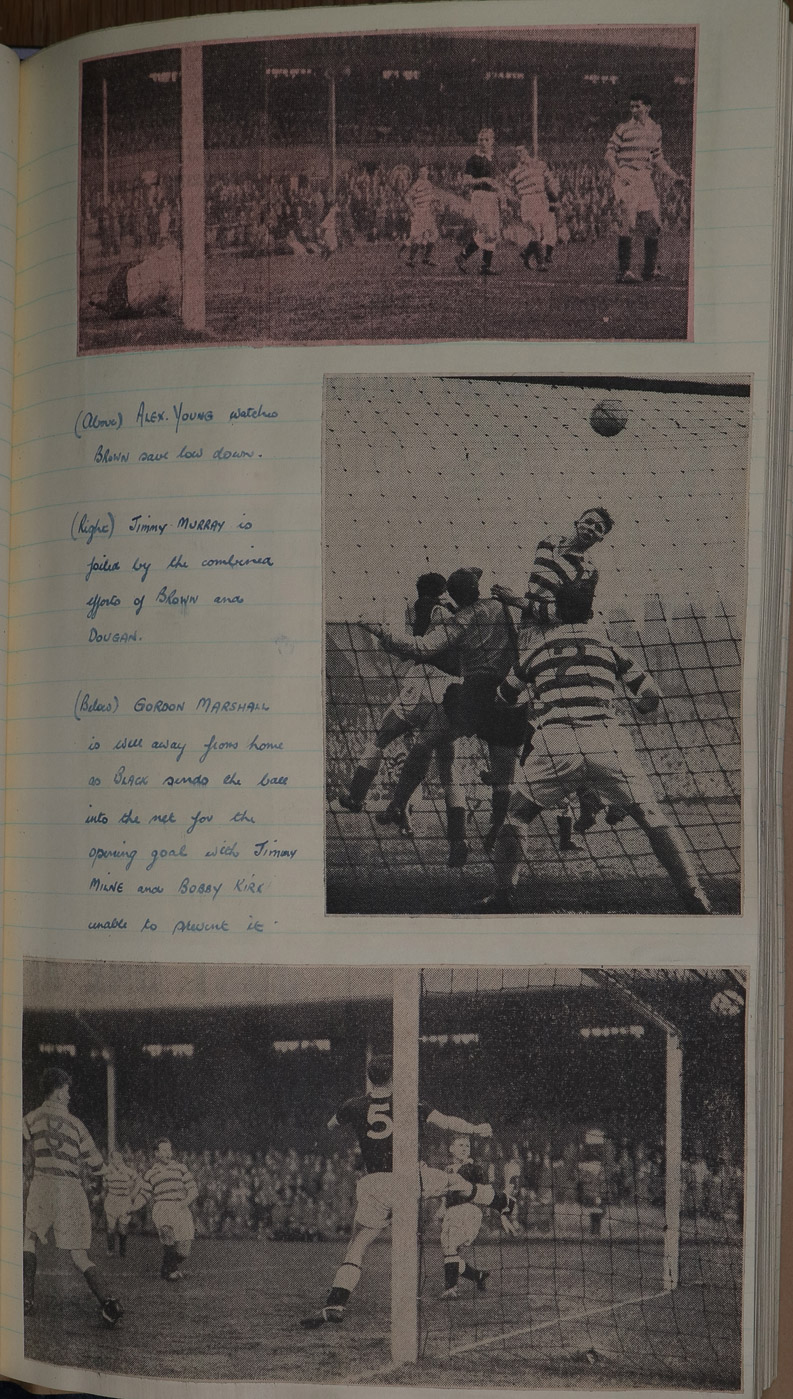 (Above) ALEX. YOUNG watches
BROWN save low down.
(Right) JIMMY MURRAY is
foiled by the combined
efforts of BROWN and
DOUGAN.
(Below) GORDON MARSHALL
is well away from home
as BLACK sends the ball
into the net for the
opening goal with JIMMY
MILNE and BOBBY KIRK
unable to prevent it.
2
5